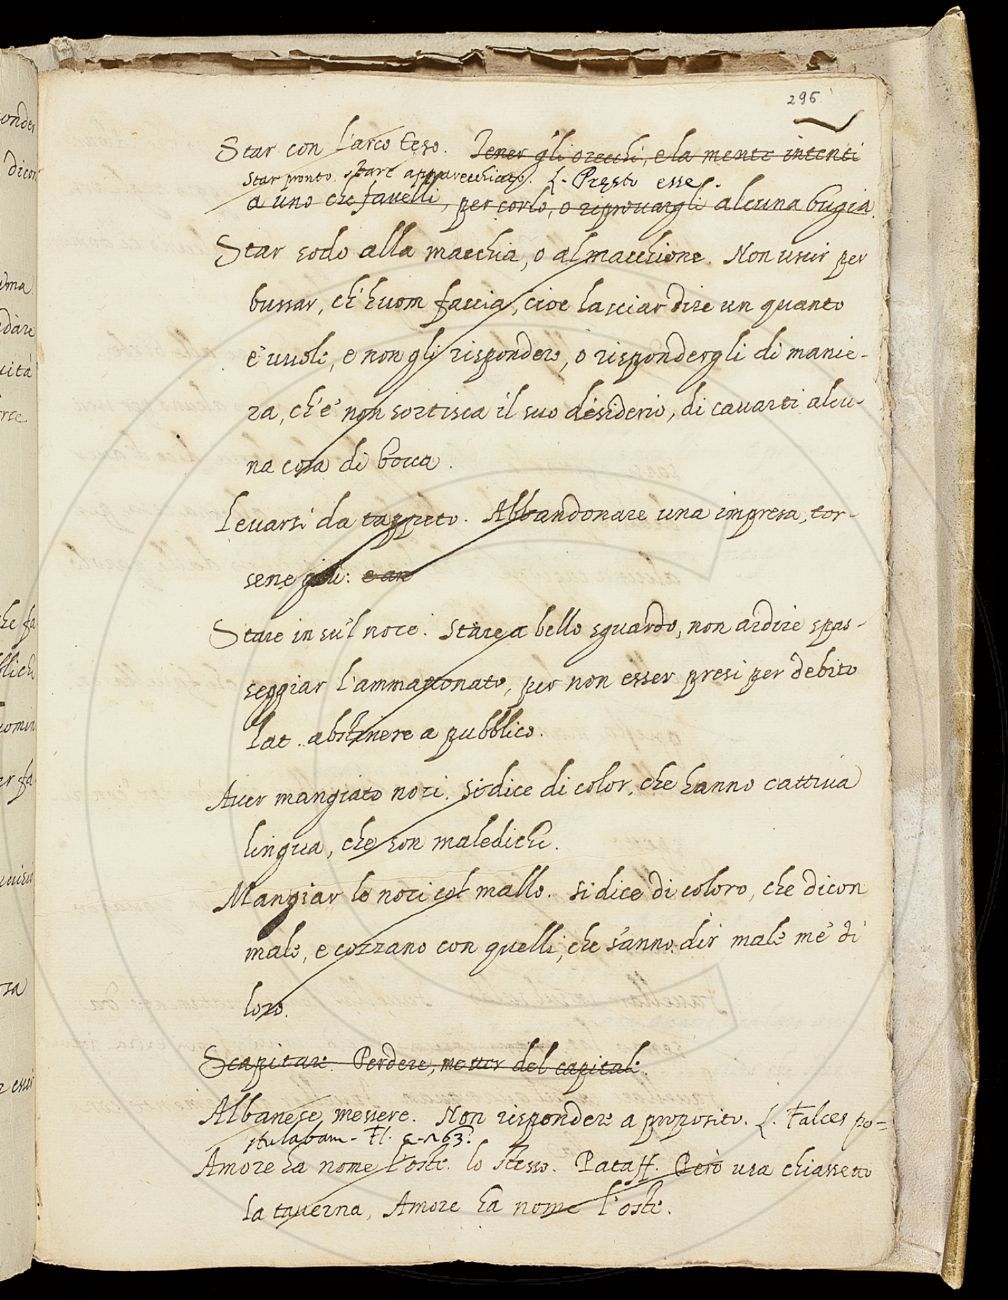 296
Star con l'arco teso. Tener gli orecchi, e la mente intenti
Star pronto. stare apparecchiato. L. Presto esse.
a uno che favelli, per corlo, o riprovargli alcuna bugia.
Star sodo alla macchia, o al macchione. Non uscir per
bussar, ch'huom faccia, cioè lasciar dire un quanto
e' vuole, e non gli rispondere, o rispondergli di manie-
ra, ch'e' non sortisca il suo desiderio, di cavarti alcu-
na cosa di bocca.
Levarsi da tappeto. Abbandonare una impresa, tor-
sene giù: e an
Stare in su'l noce. Stare a bello sguardo, non ardire spas-
seggiar l'ammattonato, per non esser presi per debito
lat. abstinere a pubblico.
Aver mangiato noci. Si dice di color, che hanno cattiva
lingua, che son maledichi.
Mangiar le noci col mallo. Si dice di coloro, che dicon
male, e cozzano con quelli, che sanno dir male me' di
loro.
Scapitare. Perdere, metter del capitale.
Albanese messere. Non rispondere a proposito. L. Falces po=
stulabam- Fl. 163.
Amore ha nome l'oste. lo stesso. Pataff. Però usa chiassetto
la taverna, Amore ha nome l'oste.